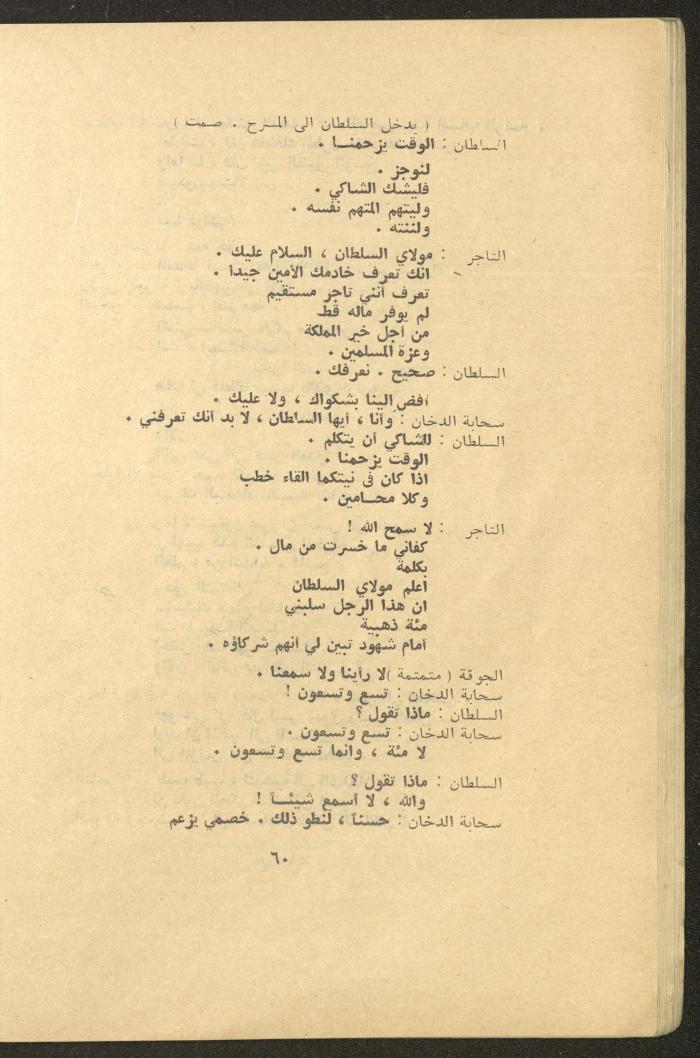 ( يدخل السلطان الى المسرح . صمت )
السلطان : الوقت يزحمنــا .
لنوجز .
فليشك الشاكي .
وليتهم المتهم نفسه .
ولننته .
التاجر : مولاي السلطان ، السلام عليك .
انك تعرف خادمك الأمين جيدا .
تعرف أنني تاجر مستقيم
لم يوفر ماله قط
من أجل خير المملكة
وعزة المسلمين .
السلطان : صحيح . نعرفك .
افض الينا بشكواك ، ولا عليك .
سحابة الدخان : وأنا ، أيها السلطان ، لا بد أنك تعرفني .
السلطان : للشاكي أن يتكلم .
الوقت يزحمنا .
اذا كان في نيتكما القاء خطب
وكلا محــامين .
التاجر : لا سمح الله !
كفاني ما خسرت من مال .
بكلمة
أعلم مولاي السلطان
ان هذا الرجل سلبني
مئة ذهبية
أمام شهود تبين لي أنهم شركاؤه .
الجوقة ( متمتمة )لا رأينا ولا سمعنا .
سحابة الدخان : تسع وتسعون !
السلطان : ماذا تقول ؟
سحابة الدخان : تسع وتسعون .
لا مئة ، وانما تسع وتسعون .
السلطان : ماذا تقول ؟
والله ، لا أسمع شيئــاً !
سحابة الدخان : حسناً ، لنطو ذلك . خصمي يزعم
٦٠